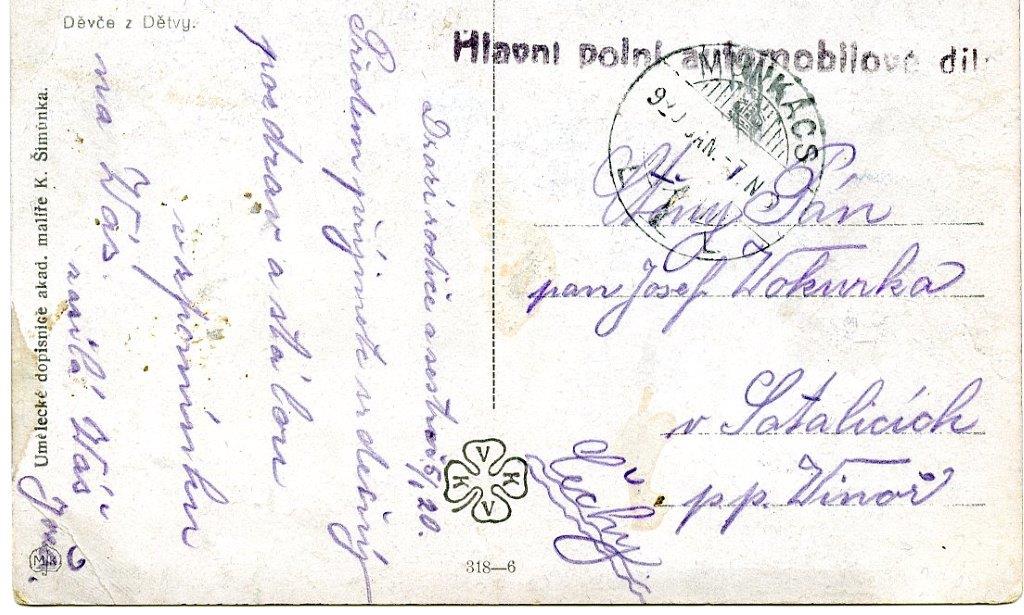 Děvče z Dětvy.
Umělecké dopisnice akad. malíře K. Šimůnka.
Hlavní polní automobilové díl
MUNKÁCS
920 JAN. -7. N
Drazí rodiče a sestro! 5/1 20.
Předem přijměte srdečný
pozdrav a stálou
vzpomínku
na Vás.
Váš
Pán
pan Josef Vokurka
v Satalicích
pp. Vinoř
Čechy
V K V K
318—6
MK